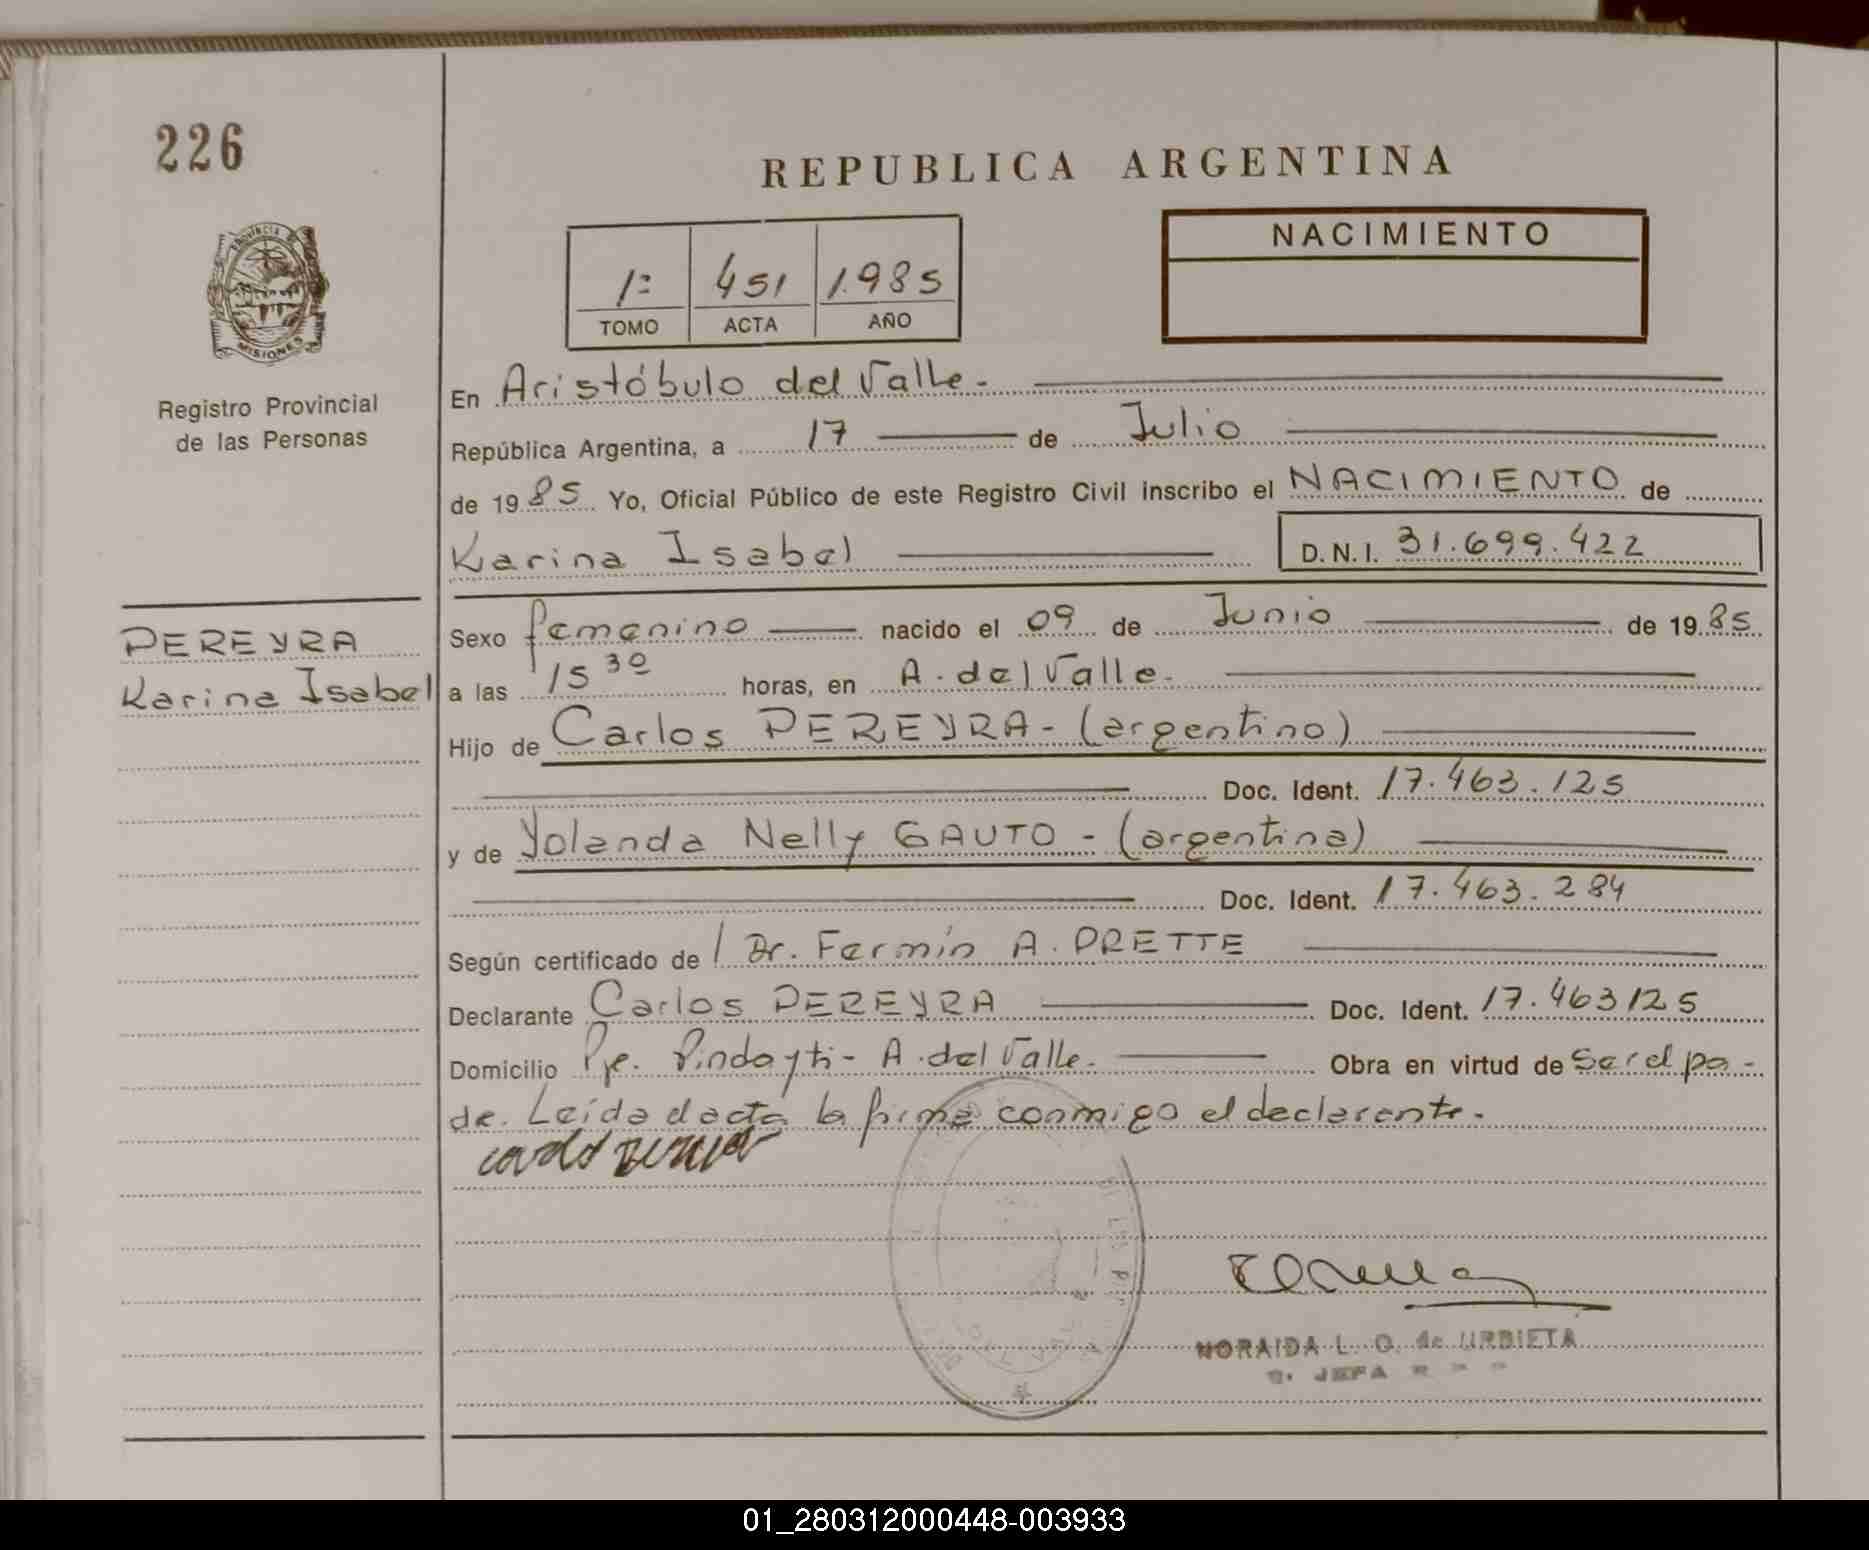 226
REPUBLICA ARGENTINA
NACIMIENTO
1º 451 1.985
TOMO ACTA AÑO
PROVINCIA DE
MISIONES
Registro Provincial
de las Personas
En Aristóbulo del Valle.-
República Argentina, a 17 de Julio
de 1985 Yo, Oficial Público de este Registro Civil inscribo el NACIMIENTO de
Karina Isabel D.N.I. 31.699.422
PEREYRA
Karina Isabel
Sexo femenino nacido el 09 de Junio de 1985
a las 15 30 horas, en A. del Valle.
Hijo de Carlos PEREYRA - (argentino)
Doc. Ident. 17.463.125
y de Yolanda Nelly GAUTO - (argentina)
Doc. Ident. 17.463.284
Según certificado de Dr. Fermín A. PRETTE
Declarante Carlos PEREYRA Doc. Ident. 17.463125
Domicilio Pje. Pindayti - A. del Valle. Obra en virtud de ser el pa-
dre. Leída el acta la firma conmigo el declarante.
NORAIDA L. G. de URBIETA
JEFA
01_280312000448-003933